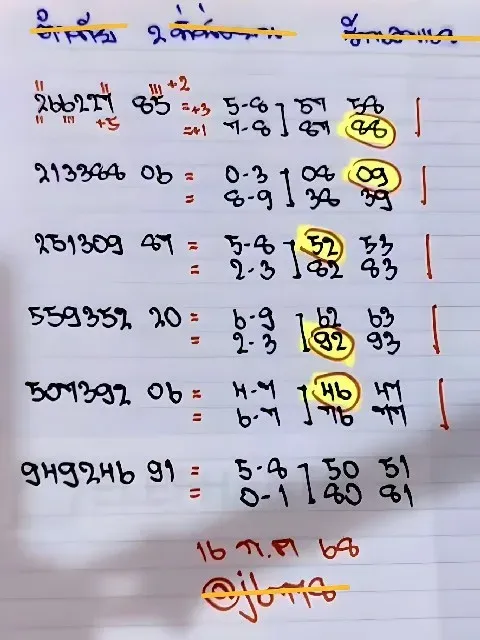 2
+2
266227 85 =+3 5-8 ] 57 58
+5 =+1 7-8 ] 87 88
213388 06 = 0-3 ] 08 09
= 8-9 ] 38 39
251309 87 = 5-8 ] 52 53
= 2-3 ] 82 83
559352 20 = 6-9 ] 62 63
= 2-3 ] 92 93
507392 06 = 4-7 ] 46 47
= 6-7 ] 76 77
949246 91 = 5-8 ] 50 51
= 0-1 ] 80 81
16 ก.ค 68